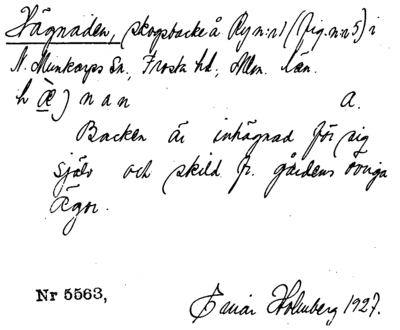 Hägnaden, skogsbacke å Ry n:r 1 (fig. n:r 5) i
N. Munkarps Sn., Frosta hd., Mlm. län.
h Æ̀ ) n a n a.
Backen är inhägnad för sig
själv och skild fr. gårdens övriga
ägor.
Nr 5563, Einar Holmberg 1927.